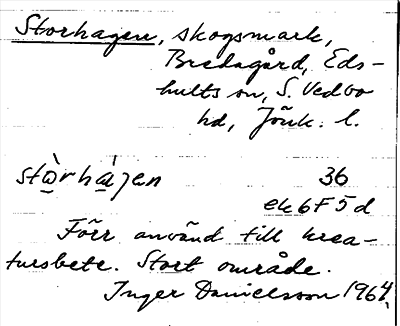 Storhagen, skogsmark,
Bredagård, Eds-
hults sn, S. Vedbo
hd, Jönk. l.
stὼrhá̱gen 36
ek 6F5d
Förr använd till krea-
tursbete. Stort område.
Inger Danielsson 1964.